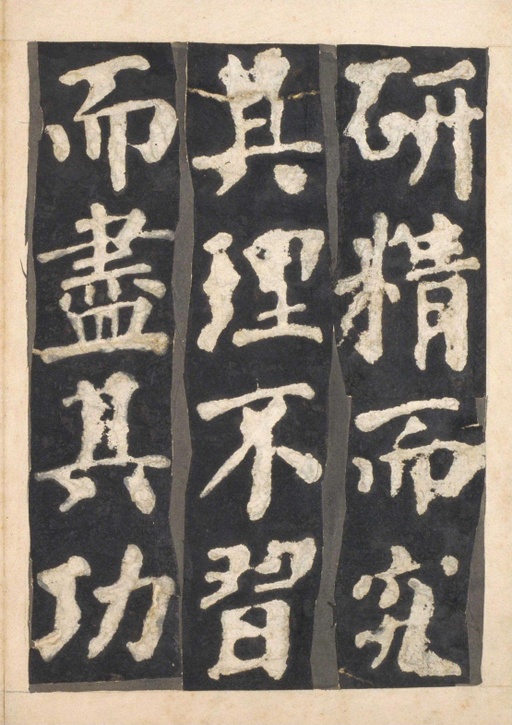 研精而究
其理不習
而盡其功